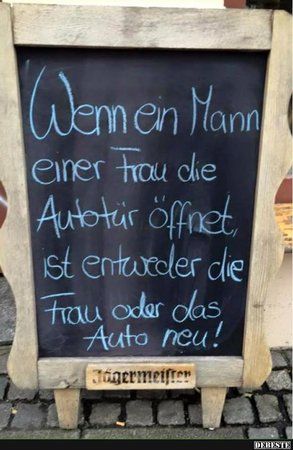 Wenn ein Mann
einer Frau die
Autotür öffnet,
ist entweder die
Frau oder das
Auto neu!
Jägermeister
DEBESTE